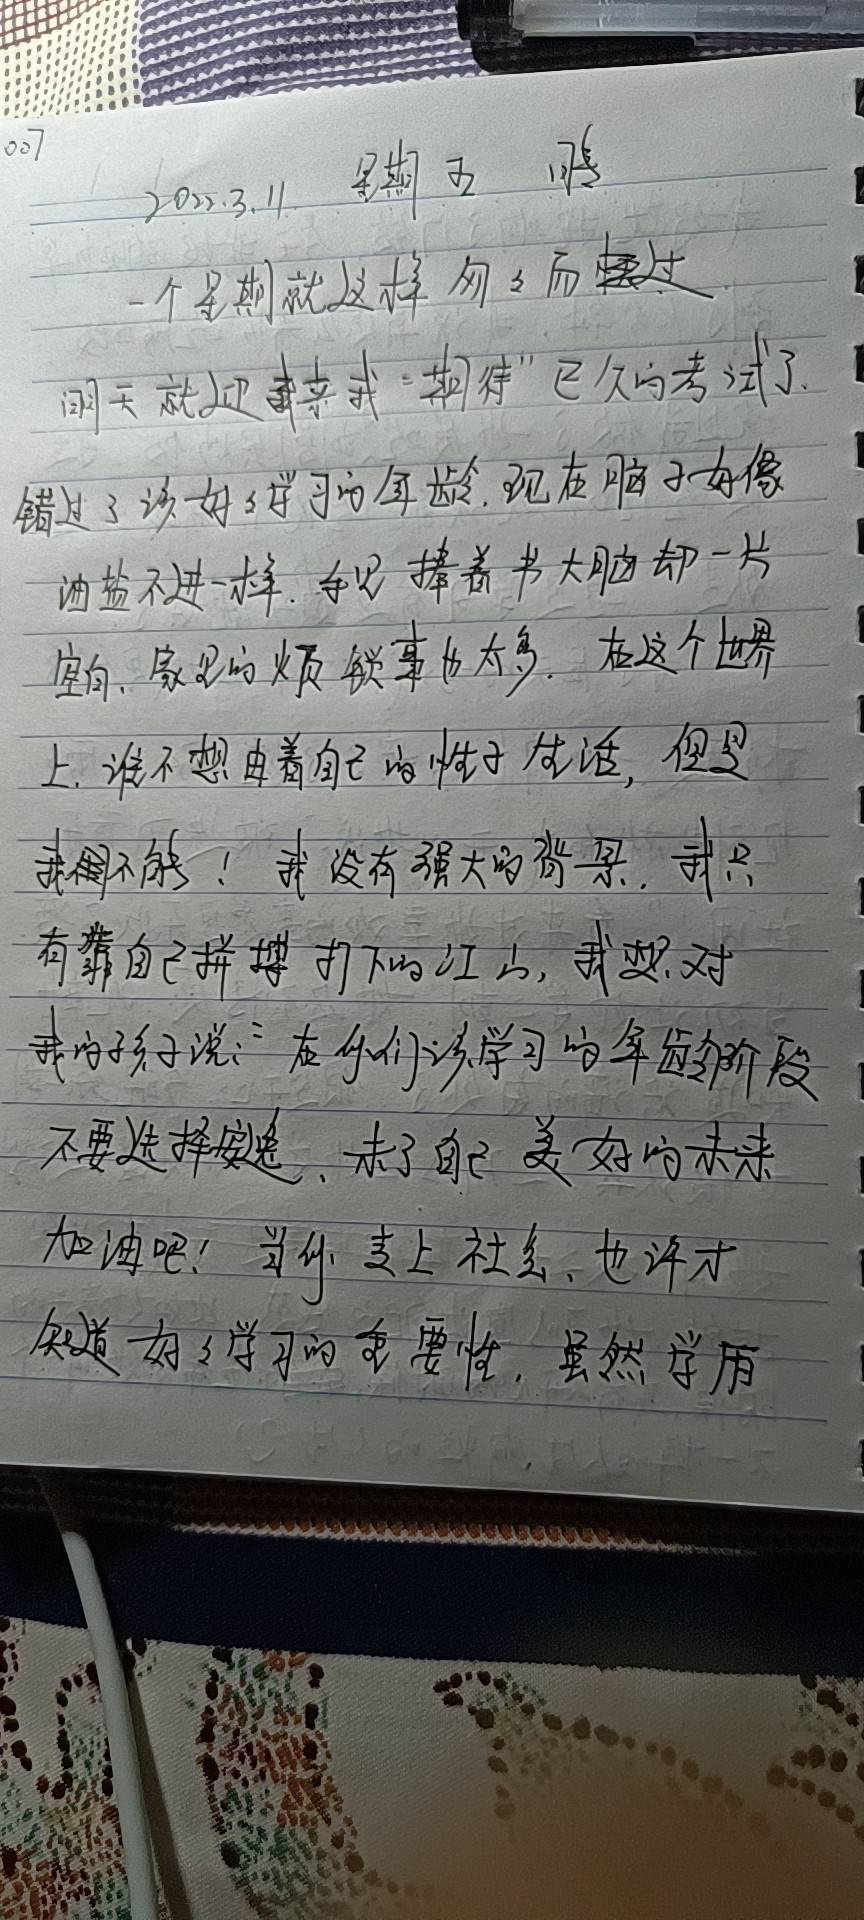 007
2022.3.11 星期五 晴
一个星期就这样匆々而过
明天就迎来我“期待”已久的考试了.
错过了该好々学习的年龄.现在脑子好像
油盐不进一样.手里捧着书大脑却一片
空白、家里的烦锁事也太多.在这个世界
上.谁不想由着自己的性子生活,但是
我不能!我没有强大的背景.我只
有靠自己拼搏打下的江山,我想对
我的孩子说:“在你们该学习的年龄阶段
不要选择安逸、未了自己美好的未来
加油吧!当你走上社会、也许才
知道好々学习的重要性.虽然学历